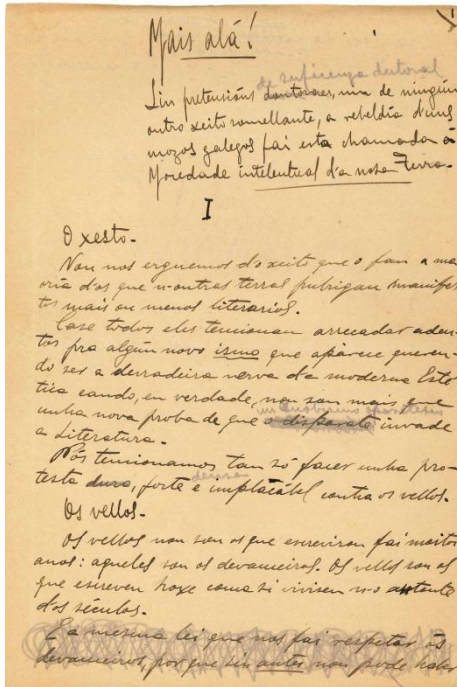 Mais alá!
de suficenza doctoral
Sin pretensións doutoraes, nin de ningún
outro xeito somellante, a rebeldía d'uns
mozos galegos fai esta chamada á
Mocedade intelentual d'a nosa Terra.
I
O xesto.
Non nos erguemos d'o xeito que o fan a mao
ría d'os que n-outras terras pubrigan manifes
tos mais ou menos literarios.
Case todos eles tencionan arrecadar adeu
tos pra algún novo ismo que aparece queren-
do ser a derradeira nerva d'a moderna Esté
tica cando, en verdade, non son mais que
unha nova proba de que o disparate invade
a Literatura.
Nós tencionamos tan só facer unha pro-
testa dura, forte e implacábel contra os vellos.
Os vellos.
Os vellos non son os que escreviron fai moitos
anos: aqueles son os devanceiros. Os vellos son os
que escreven hoxe coma si vivisen n-o antonte
d'os séculos.
E a mesma lei que nos fai respetar ós
devanceiros, porque sin antes non pode haber